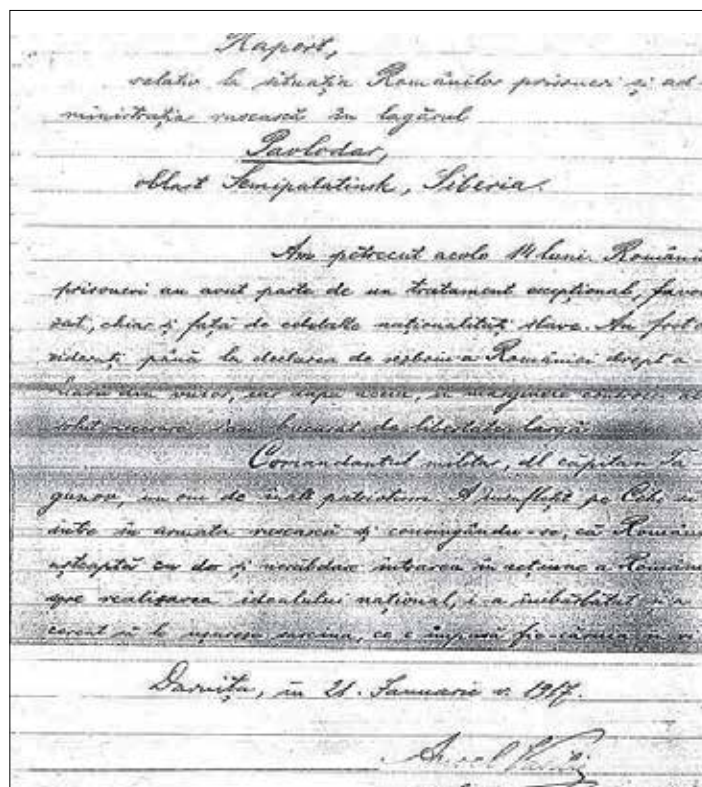 Raport,
relativ la situația Românilor prisoneri și ad-
ministrația rusească în lagărul
Pavlodar,
oblast Semipalatinsk, Siberia.
Am petrecut acolo 14 luni. Românii
prisoneri au avut parte de un tratament excepțional, favo
zat, chiar și față de celelalte naționalități slave. Au fost
siderați până la declararea de resboiu a României drept a
din viitor, iar după aceea, în marginere
s'au bucurat de libertate largă.
Comandantul militar, dl căpitan
gunov, un om de înalt patriotism. A însuflețit pe Cehi să
intre în armata rusească și convingându-se, că Români
așteaptă cu dor și nerăbdare intrarea în acțiune a Români
spre realizarea idealului național, i-a îmbărbătat și a
cercat să le ușureze sarcina, ce e impusă fie-căruia în
Darnița, în 21. Ianuarie v. 1917.